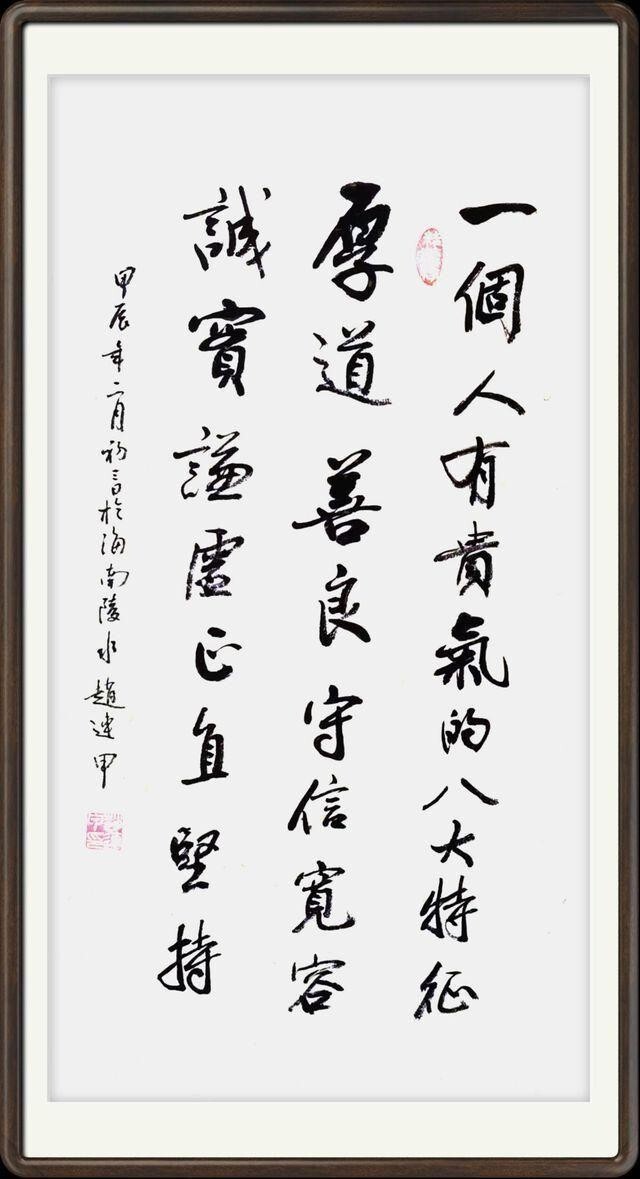 一個人有貴氣的八大特征
厚道善良守信寬容
誠實謙虛正直堅持
甲辰年二月初三日於海南陵水趙連甲